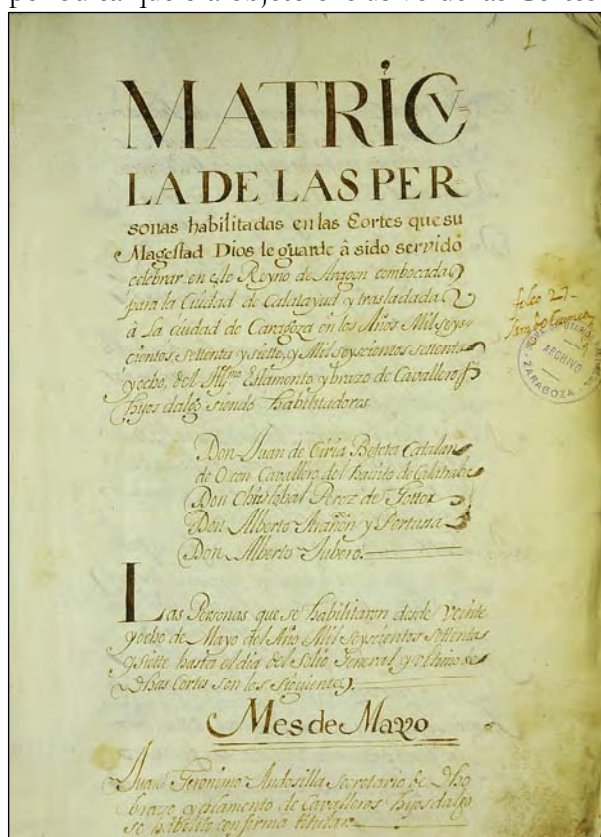 1
MATRICV=
LA DE LAS PER
sonas habilitadas en las Cortes que su
Magestad Dios le guarde â sido servido
celebrar en este Reyno de Aragon combocadas
para la Ciudad de Calatayud y trasladadas
â La ciudad de Caragoza en los Años Mil seys-
cientos settenta y siette, y Mil seyscientos settenta
y ocho, del Estamento y brazo de Cavalleros
hijos dalgo siendo habilitadores.
Don Juan de Ciria Beteta Catalan
de O con Cavallero del havito de Calatraba
Don Christobal Perez de
Don Alberto Arañon y Pertusa
Don Alberto Tubero.
Las Personas que se habilitaron desde Veinte
y ocho de Mayo del Año Mil Seyscientos settenta
y siette hasta el dia del solio General y ultimo de
Dhas Cortes son los siguientes.
Mes de Mayo
Juan Geronimo Andosilla secretario de Dho
brazo y estamento de Cavalleros hijos dalgo
se habilito con firma titular
ARCHIVO
ZARAGOZA